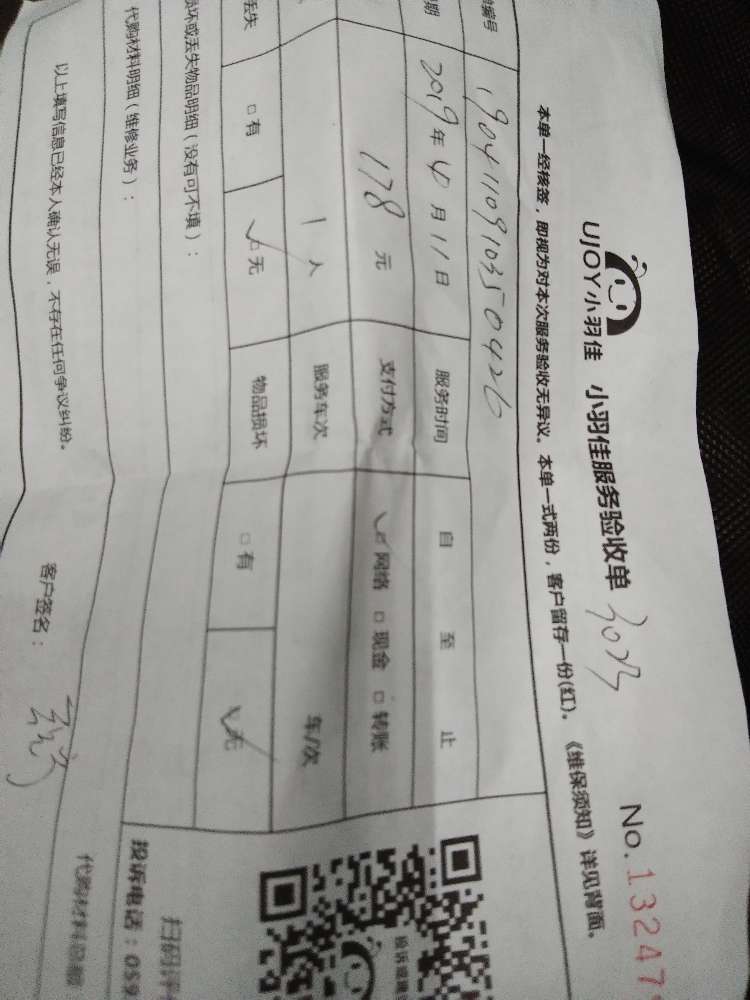 UJOY小羽佳 小羽佳服务验收单 No.13247
本单一经核签，即视为对本次服务验收无异议。本单一式两份，客户留存一份(红)。《维保须知》详见背面。
编号 1904110910350426
期 2019年4月11日 服务时间 自 至 止
178元 支付方式 ☑网络 □现金 □转账
1人 服务车次 车/次
丢失 □有 ☑无 物品损坏 □有 ☑无
坏或丢失物品明细（没有可不填）：
代购材料明细（维修业务）：
代购材料总额
以上填写信息已经本人确认无误，不存在任何争议纠纷。 客户签名：
投诉或建
扫码评
投诉电话：059